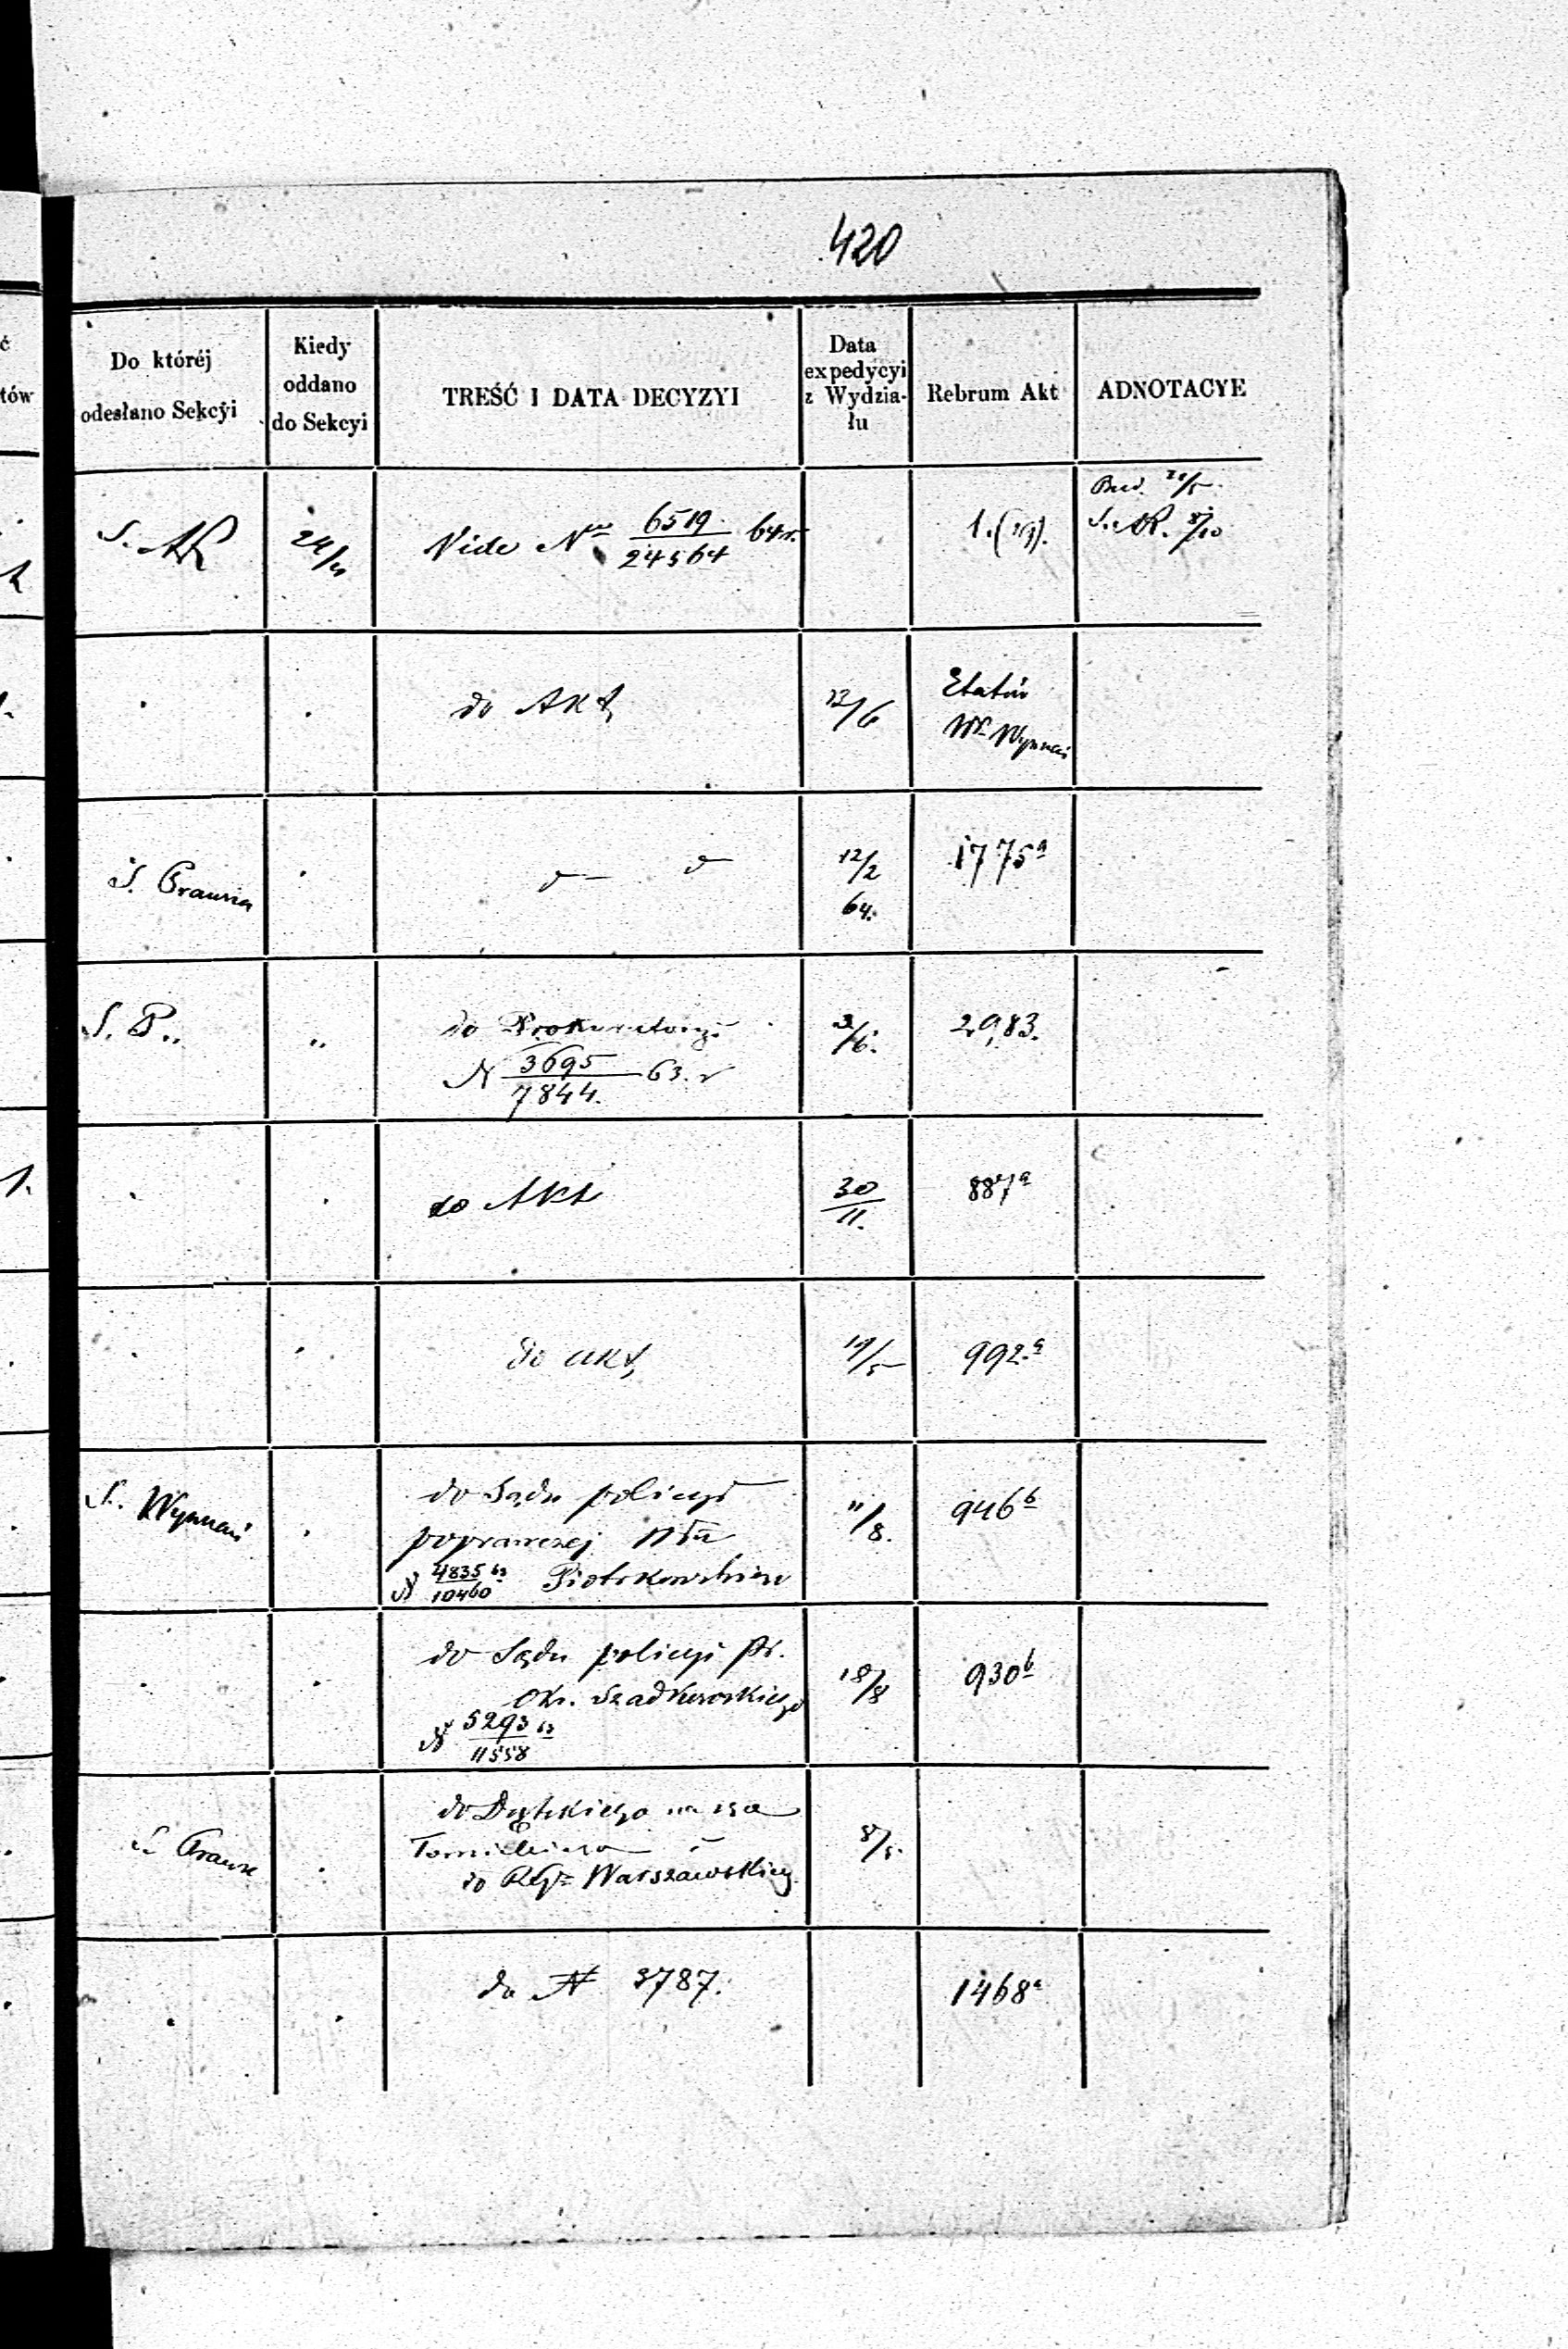 420
Do któréj
odesłano Sekcyi
Kiedy
oddano
do Sekcyi
TREŚĆ I DATA DECYZYI
Data
expedycyi
z Wydzia-
łu
Rebrum Akt
ADNOTACYE
S. AR
24/4
Vide N 6519/24564 64 r.
1.(29).
21/5
S. AR. 8/10
do Akt
6
Etatów
S. Prawna
12/2
64.
1775a
S. P.
„
do Prokuratoryi
N 3695/7844. 63. r
3/6.
2983.
do Akt
30/11.
887a
do akt
19/5
992.a
S. Wyznań
do Sądu policyi
poprawczej
N 4835/10460 63 Piotrkowskiego
11/8.
946b
do Sądu policyi Pr.
Okr. Szadkowskiego
N 5293/11558 63
18/8
930b
S. Prawn
do
do Warszawskiej
8/5.
do N 3787.
1468a